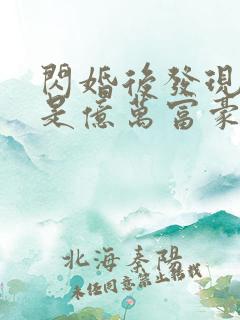 閃婚後發現
是億萬富豪
北海秦陽
未經同意禁止轉載